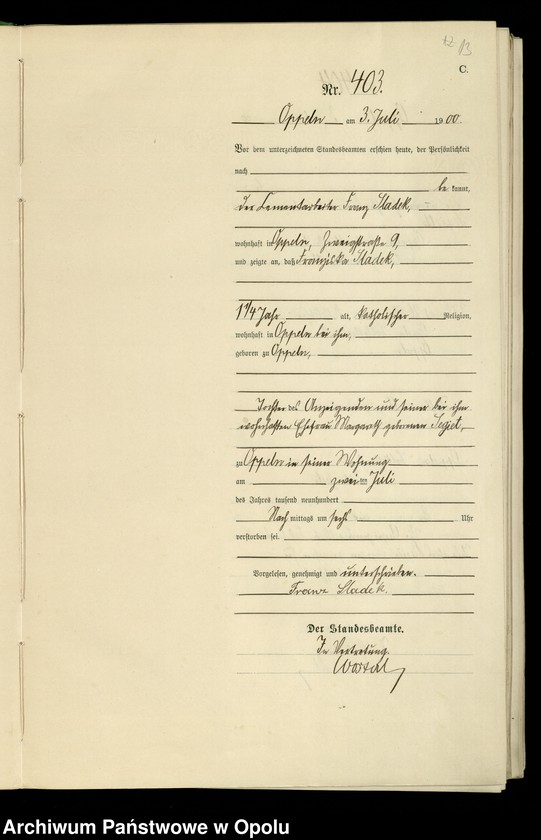 13
C.
Nr. 403.
Oppeln am 3. Juli 1900.
Vor dem unterzeichneten Standesbeamten erschien heute, der Persönlichkeit
nach
be kannt,
der Cementarbeiter Franz Sladek,
wohnhaft in Oppeln, Zweigstraße 9,
und zeigte an, daß Franziska Sladek,
1 1/4 Jahr alt, katholischer Religion,
wohnhaft in Oppeln bei ihm,
geboren zu Oppeln,
Tochter des Anzeigenden und seiner bei ihm
wohnhaften Ehefrau Margareth geborenen
zu Oppeln in seiner Wohnung
am zweiten Juli
des Jahres tausend neunhundert
Nach mittags um sechs Uhr
verstorben sei.
Vorgelesen, genehmigt und unterschrieben.
Franz Sladek.
Der Standesbeamte.
In Vertretung.
Archiwum Państwowe w Opolu